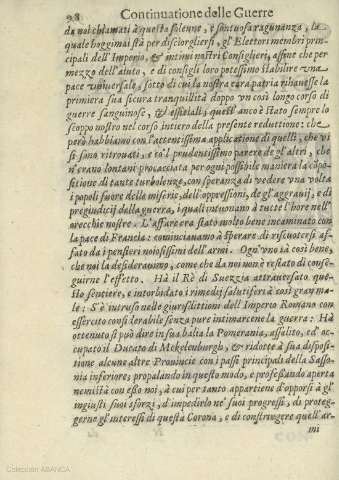 98 Continuatione delle Guerre
da noi chiamati à questa solenne, e sontuosa ragunanza, la
quale hoggimai stà per disciorgliersi, gl'Elettori membri prin-
cipali dell'Imperio, & intimi nostri Consiglieri, affine che per
mezzo dell'aiuto, e di consigli loro potessimo stabilire vna
pace vniuersale, sotto di cui la nostra cara patria rihauesse la
primiera sua sicura tranquilità doppo vn così longo corso di
guerre sanguinose, & essitiali; quest'anco è stato sempre lo
scoppo nostro nel corso intiero della presente reduttione: che
però habbiamo con l'attentissima applicatione di quelli, che vi
si sono ritrouati, e co'l prudentissimo parere de gl'altri, che
n'erano lontani procacciata per ogni possibile maniera la cōpo-
sitione di tante turbolenze, con speranza di vedere vna volta
i popoli fuore delle miserie, dell'oppressioni, de gl'aggrauij, e di
pregiudicij della guerra, i quali intuonano à tutte l'hore nell'
orecchie nostre. L'affare era stato molto bene incaminato con
la pace di Francia: cominciauamo à sperare di riscuotersi af-
fato da i pensieri noiosissimi dell'armi. Ogn'vno sà così bene,
che noi la desiderauimo, come che da noi non è restato di conse-
guirne l'effetto. Hà il Rè di Suezzia attrauersato que-
sto sentiere, e intorbidato i rimedij salutiferi à così gran ma-
le: S'è intruso nelle giurisdittioni dell'Imperio Romano con
essercito considerabile senza pure intimarcene la guerra: Hà
ottenuto si può dire in sua balìa la Pomerania, assalito, ed oc-
cupato il Ducato di Mekelenburgh, & ridotte à sua disposi-
tione alcune altre Prouincie con i passi principali della Sasso-
nia inferiore; propalando in questo modo, e professando aperta
nemistà con esso noi, à cui per tanto appartiene d'opporsi à gl'
ingiusti suoi sforzi, d'impedirlo ne' suoi progressi, di proteg-
gerne gl'interessi di questa Corona, e di constringere quell'ar-
mi
Colección ABANCA